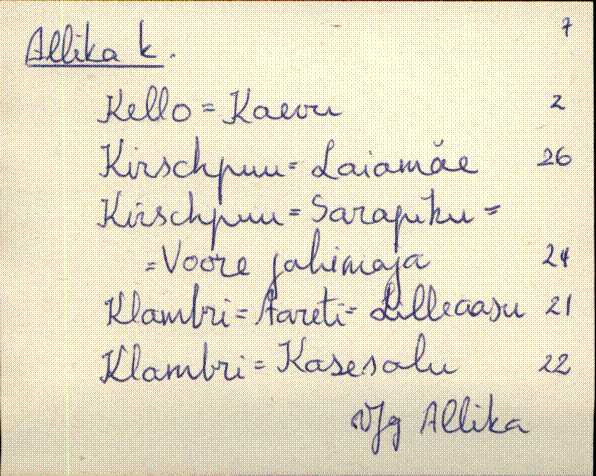 7
Allika k.
Kello = Kaevu 2
Kirschpuu = Laiamäe 26
Kirschpuu = Sarapiku =
= Voore jahimaja 24
Klambri = Aareti = Lilleaasu 21
Klambri = Kasesalu 22
Vjg Allika